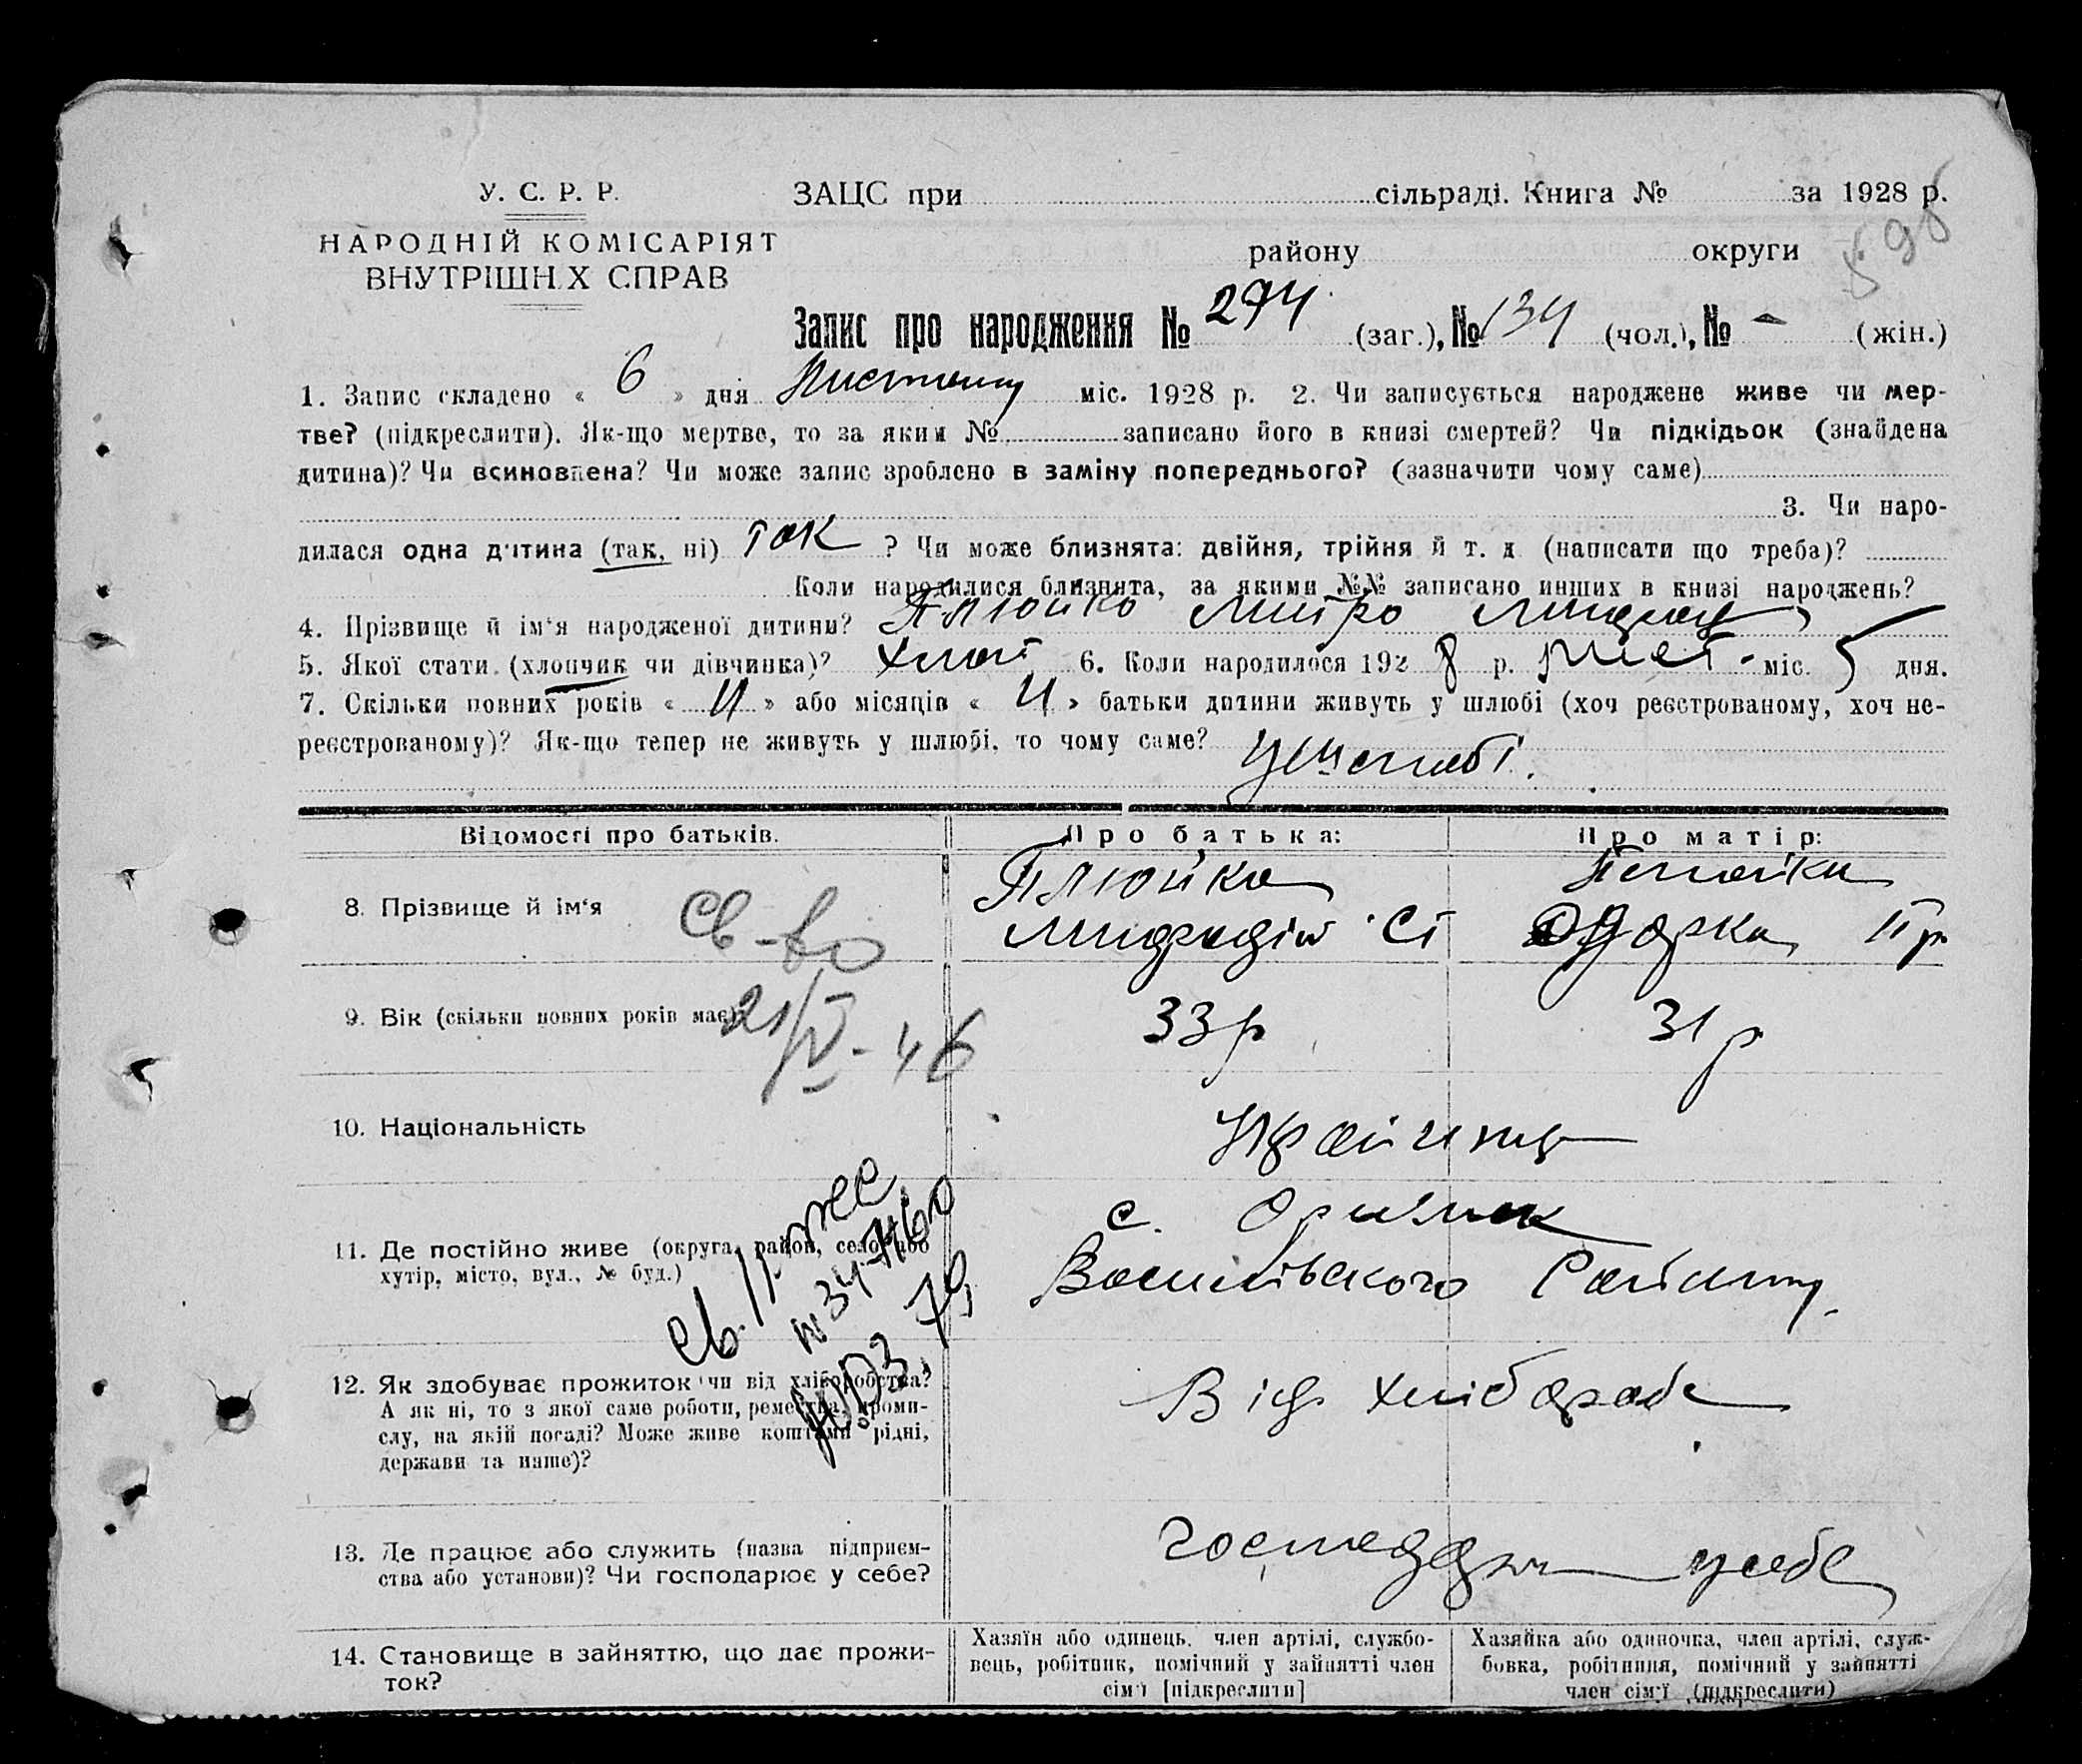 У. С. Р. Р.
НАРОДНІЙ КОМІСАРІЯТ
ВНУТРІШН.Х СПРАВ
ЗАЦС при сільраді. Книга № за 1928 р.
району округи
598
Запис про народження № 274 (заг.), № 134 (чол.), № - (жін.)
1. Запис складено « 6 » дня Листопаду міс. 1928 р. 2. Чи записується народжене живе чи мер-
тве? (підкреслити). Як-що мертве, то за яким № записано його в книзі смертей? Чи підкідьок (знайдена
дитина)? Чи всиновлена? Чи може запис зроблено в заміну попереднього? (зазначити чому саме)
3. Чи наро-
дилася одна дитина (так, ні) так ? Чи може близнята: двійня, трійня й т. д (написати що треба)?
Коли народилися близнята, за якими №№ записано инших в книзі народжень?
4. Прізвище й ім'я народженої дитини? Плюйко Митро
5. Якої стати (хлопчик чи дівчинка)? хлоп 6. Коли народилося 1928 р. Лист. міс. 5 дня.
7. Скільки повних років « 11 » або місяців « 11 » батьки дитини живуть у шлюбі (хоч реєстрованому, хоч не-
реєстрованому)? Як-що тепер не живуть у шлюбі, то чому саме? у шлюбі.
Відомості про батьків. Про батька: Про матір:
8. Прізвище й ім'я Плюйко
Одарка Пр
Св-во
9. Вік (скільки повних років має)? 33 р 31 р
21/IV-46
10. Національність
11. Де постійно живе (округа, район, село або
хутір, місто, вул., № буд.)
с. Оржик
Василівського Району.
12. Як здобуває прожиток чи від хліборобства?
А як ні, то з якої саме роботи, ремества, проми-
слу, на якій посаді? Може живе коштами рідні,
держави та инше)?
Від хлібороб
13. Де працює або служить (назва підприєм-
ства або установи)? Чи господарює у себе?
у себе
14. Становище в зайняттю, що дає прожи-
ток?
Хазяїн або одинець, член артілі, службо-
вець, робітник, помічний у зайнятті член
сім'ї [підкреслити]
Хазяйка або одиночка, член артілі, служ-
бовка, робітниця, помічний у зайнятті
член сім'ї (підкреслити)